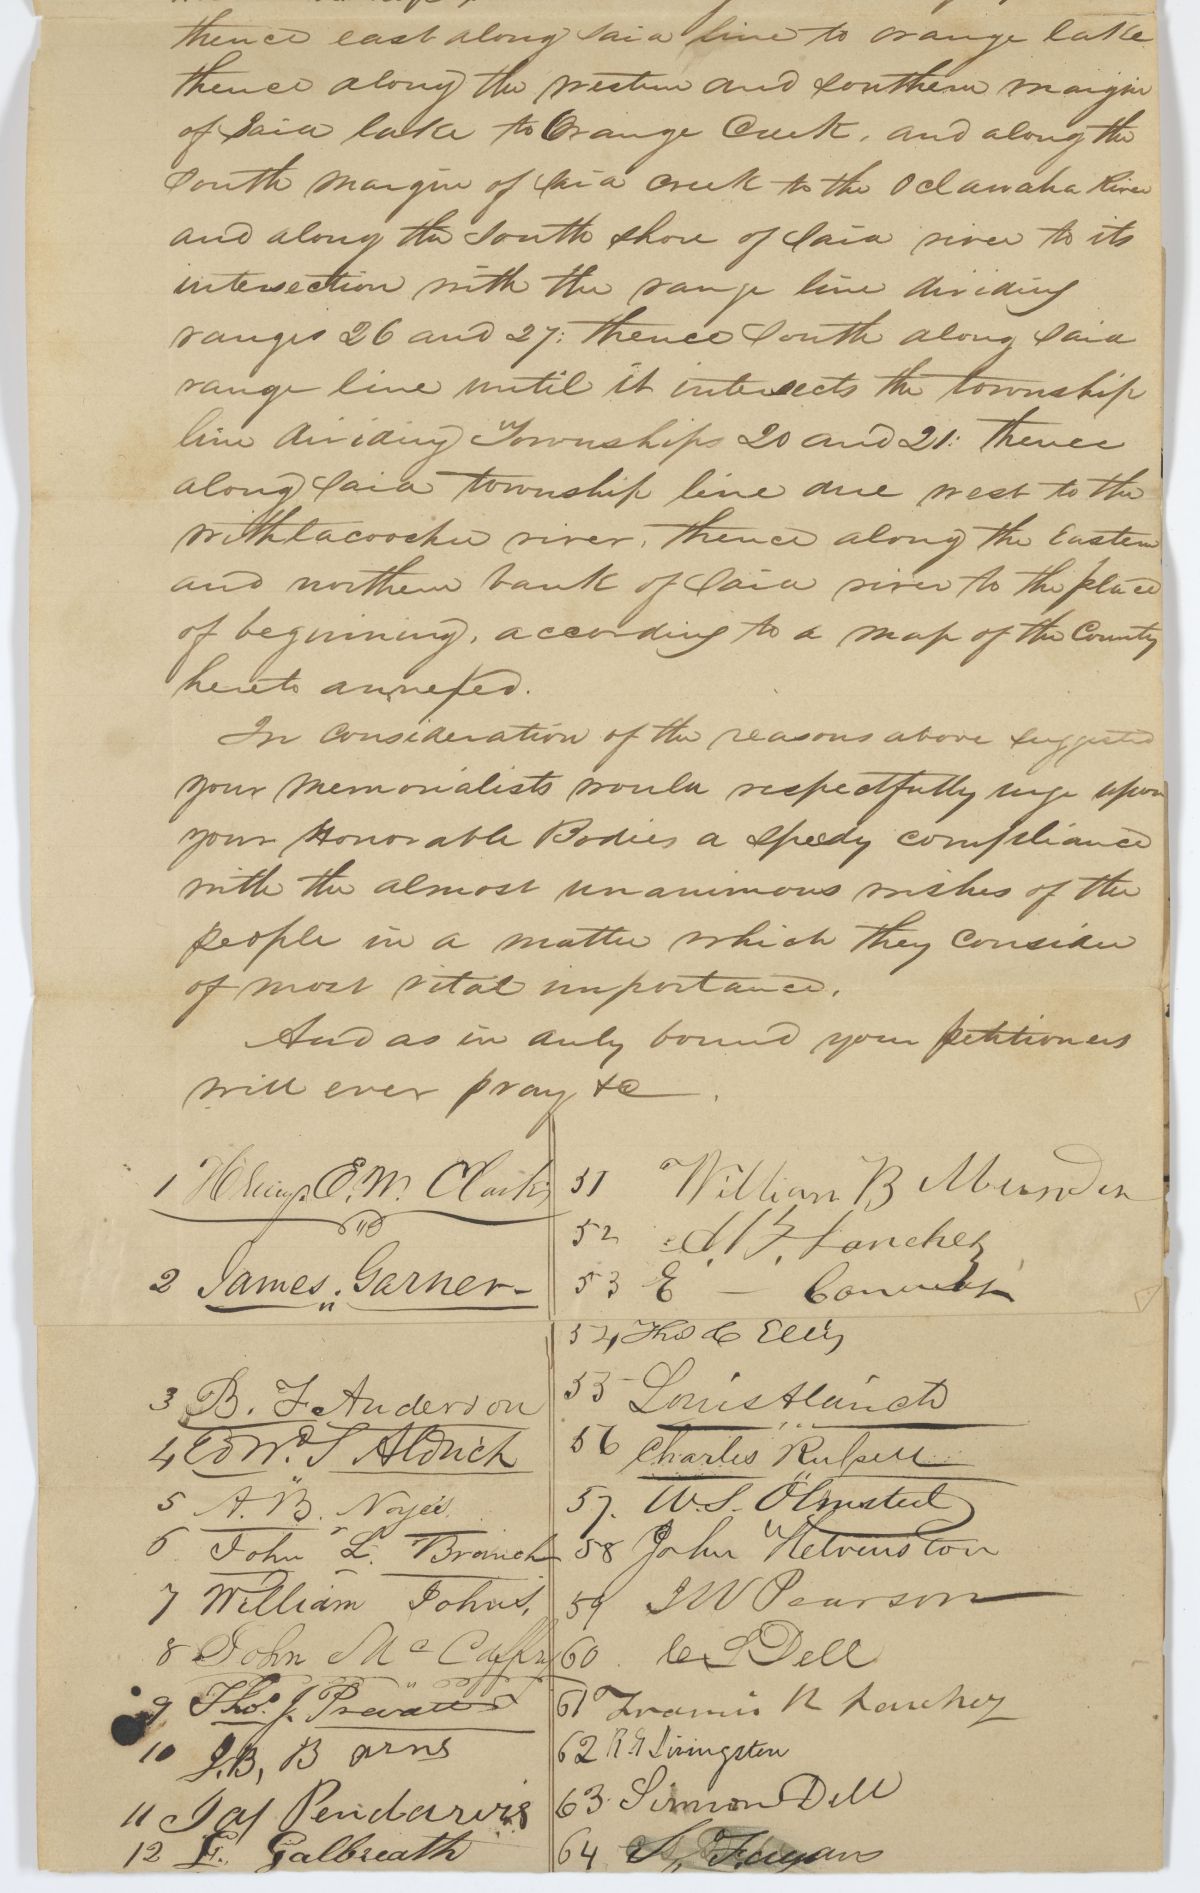 thence east along said line to orange lake
thence along the western and southern margin
of said lake to Orange Creek, and along the
South margin of said creek to the Oclawaha River
and along the South shore of said river to its
intersection with the range line dividing
ranges 26 and 27: thence South along said
range line until it intersects the township
line dividing Townships 20 and 21: thence
along said township line due west to the
withlacoochee river, thence along the Eastern
and northern bank of said river to the place
of beginning, according to a map of the County
hereto annexed.
In consideration of the reasons above suggested
your memorialists would respectfully urge upon
your Honorable Bodies a speedy compliance
with the almost unanimous wishes of the
people in a matter which they consider
of most vital importance.
And as in duty bound your petitioners
will ever pray &c
1 E. W. Clark
2 James Garner
3 B. F. Anderson
4 Edwd. S Aldrich
5 A. B. Noyes
6 John L. Branch
7 William Johns,
8 John Mc Caffry
9 Thos. J. Prevatt
10 J. B, Barns
11 Jas Pendarvis
12 E. Galbreath
51 William B
52 Sanchez
53 E
54 Thos C Ellis
55 Louis Alduich
56 Charles
57. W. S. Olmsted
58 John Helvinston
59 J W Pearson
60 C S Dell
61 Francis R Sanchez
62 R G Livingston
63 Simeon Dell
64 S, Fagans